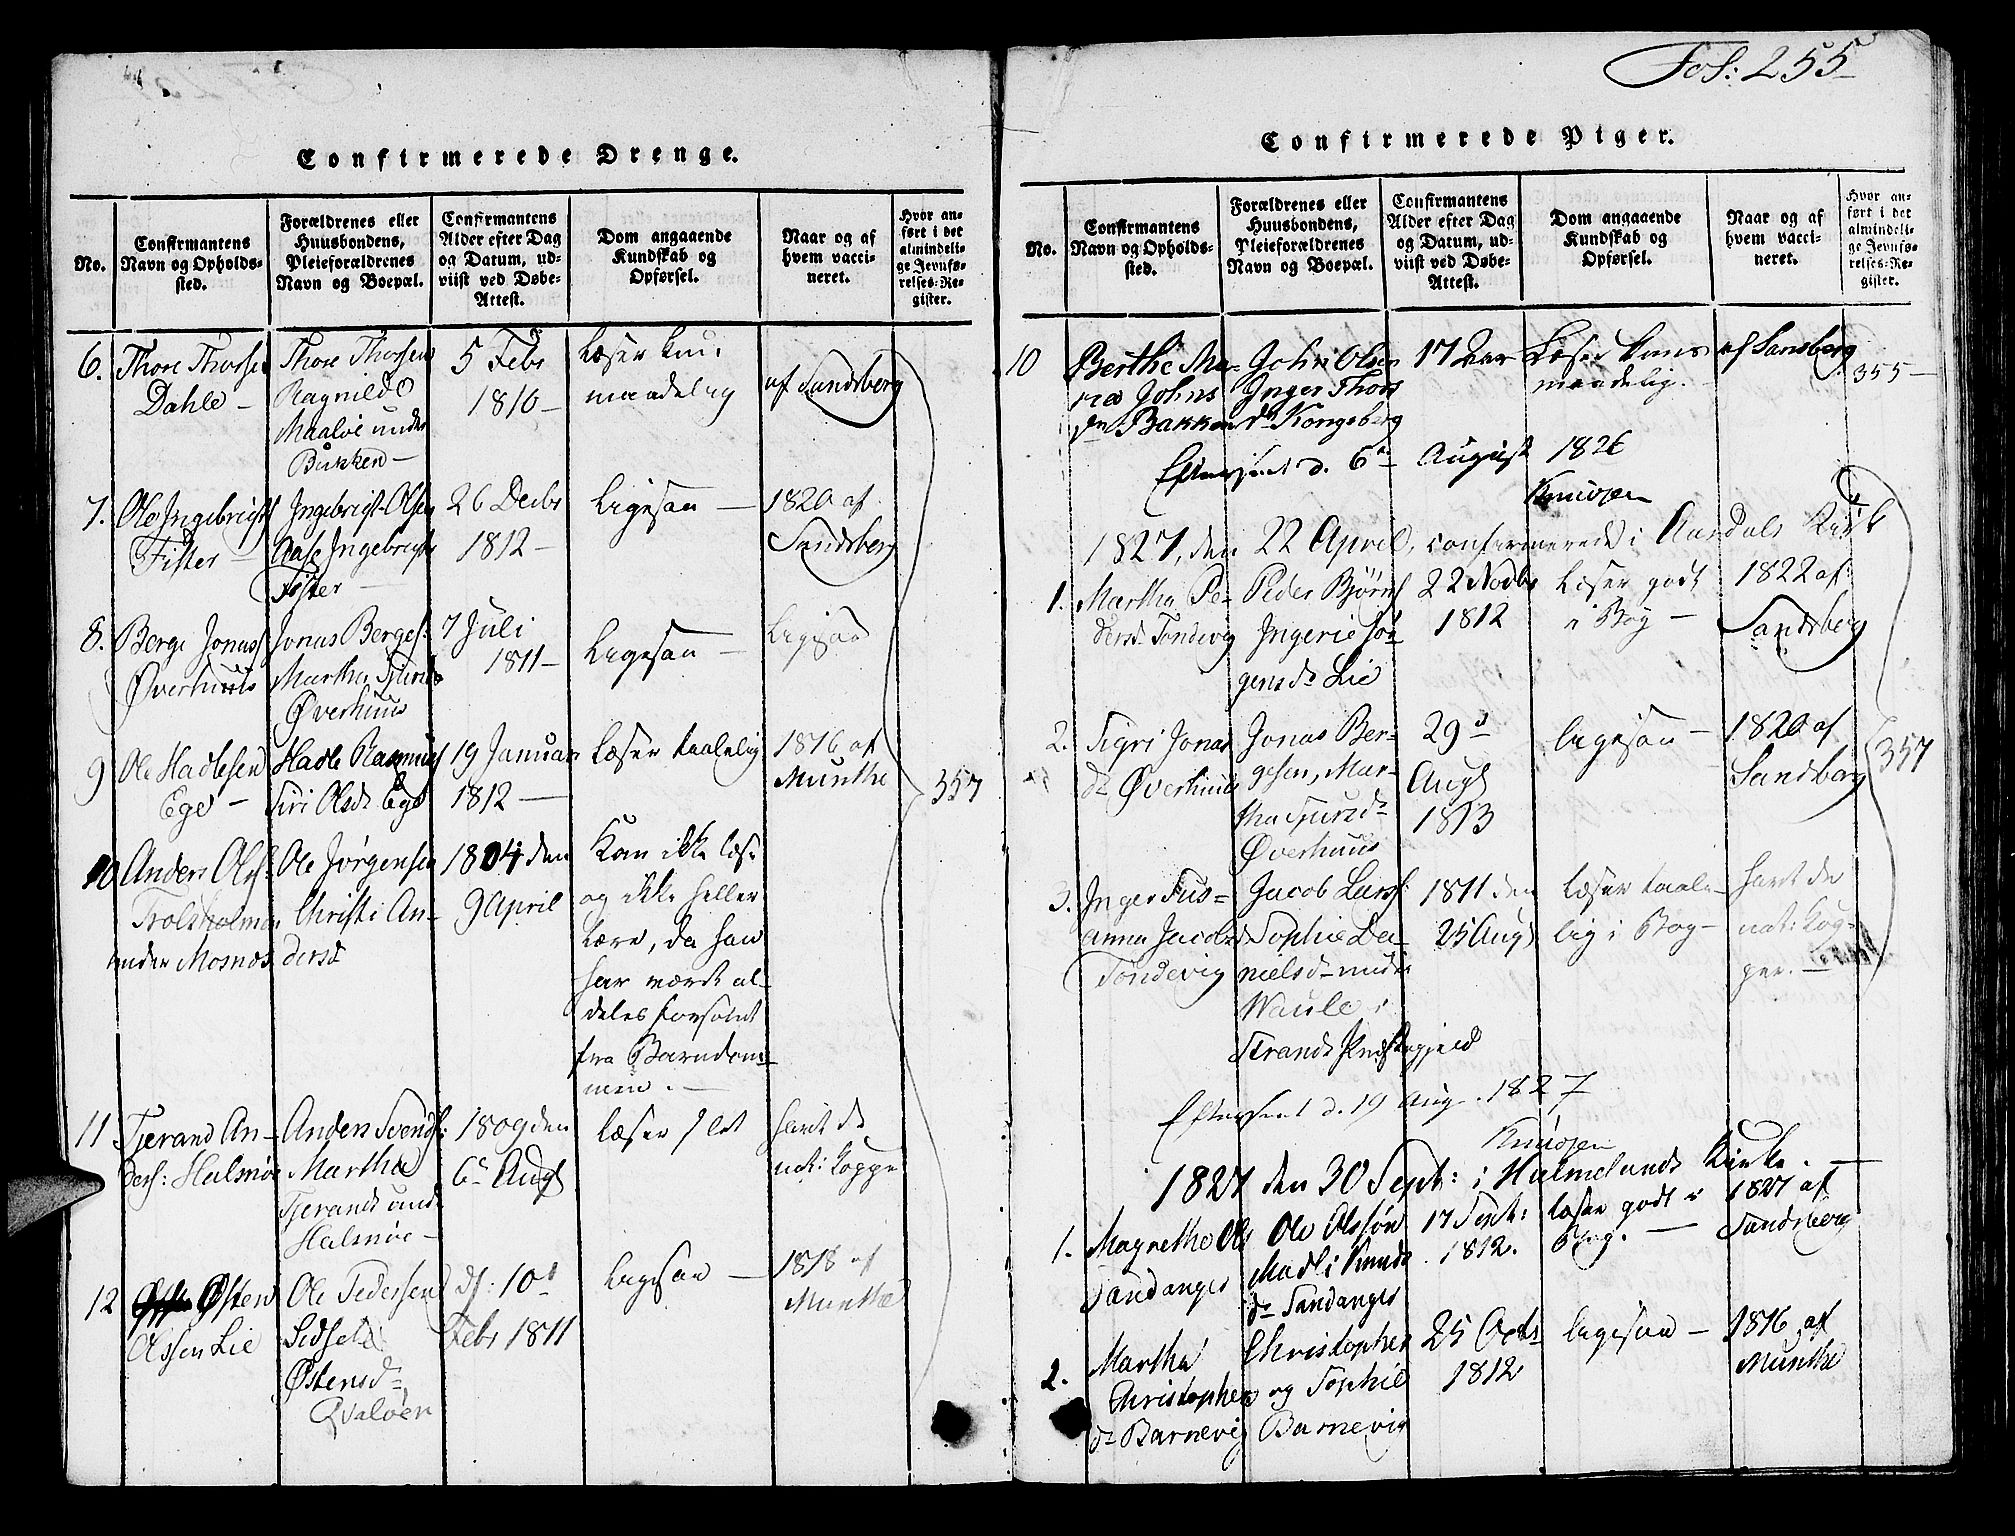 Fol: 255
Confirmerede Drenge.
No.
Confirmantens
Navn og Opholds-
sted.
Forældrenes eller
Huusbondens,
Pleieforældrenes
Navn og Boepæl.
Confirmantens
Alder efter Dag
og Datum, ud-
viist ved Døbe-
Attest.
Dom angaaende
Kundskab og
Opførsel.
Naar og af
hvem vacci-
neret.
Hvor an-
ført i det
almindeli-
ge Jevnfø-
relses-Re-
gister.
6.
Thore Thorsen
Dahle -
Thore Thorsen
Ragnild
Maaløe under
Bukken -
5 Febr
1810 -
Læser
maadelig
af Sandsberg
7.
Ole Ingebrigts
Fister -
Ingebrigt Olsen
Aase Ingebrigts
Fister -
26 Decbr
1812 -
Ligesaa -
1820 af
Sandsberg
8.
Berge Jonass
Øverhuus
Jonas Berges:
Martha Sjurds
Øverhuus
7 Juli
1811 -
Ligesaa -
Ligesaa
9
Ole Hadlesen
Ege -
Hadle Rasmus
Siri Olsdr Ege
19 Januar
1812 -
Læser taalelig
1816 af
Munthe
357
10
Anders Olss:
Trolsholmen
under Mosnæs
Ole Jørgensen
Christi An-
dersd
1804 den
9 April
Kan ikke læse
og ikke heller
lære, da han
har været al-
deles forsømt
fra Barndom-
men. -
11
Tjerand An-
ders: Halsnøe
Anders Svends:
Martha
Tjerands und
Halsnøe -
1809 den
6te Augt
Læser slet
havt de
nat: Koppe
12
Østen
Olssen Lie
Ole Pedersen
Sidsele
Østensd-
Qvaløen
d: 10d
Febr 1811
Ligesaa -
1818 af
Munthe
Confirmerede Piger.
No.
Confirmantens
Navn og Opholds-
sted.
Forældrenes eller
Huusbondens,
Pleieforældrenes
Navn og Boepæl.
Confirmantens
Alder efter Dag
og Datum, ud-
viist ved Døbe-
Attest.
Dom angaaende
Kundskab og
Opførsel.
Naar og af
hvem vacci-
neret.
Hvor an-
ført i det
almindeli-
ge Jevnfø-
relses-Re-
gister.
10
Berthe Ma-
ria Johns
Bakken
John Olsen
Inger Thors
dr Kongsberg
17 Aar
Læser
maadelig.
af Sandsberg
355 -
Efterseet d. 6te August 1826
Knudsen
1827, den 22 April, confirmerede i Aardals Kirk
1.
Martha Pe-
dersd. Tøndevig
Peder Bjørns
Ingerie Jør-
gensdr Lie
22 Novbr
1812
Læser godt
i Bog -
1822 af
Sandsberg
2.
Sigri Jonas
dr Øverhuus
Jonas Ber-
gesen, Mar-
tha Sjursdr
Øverhuus
29d
Augt
1813
ligesaa -
1820 af
Sandsberg
357
3.
Inger Sus-
anna Jacobsd
Tøndevig
Jacob Lars:
Sophie Da-
nielsdr under
Waule i
Strands Præstegjeld
1811 den
25 Augt
læser taale-
lig i Bog -
havt de
nat: Kop-
per. -
Efterseet d. 19 Aug. 1827
Knudsen
1827 den 30 Sept: i Hjelmelands Kirke. -
1.
Magrethe Ols
Sandanger
Ole Olssøn
Madli Knuds
dr Sandanger
17 Sept:
1812.
læser godt i
Bog. -
1827 af
Sandsberg
2.
Martha
Christophers
dr Barnevig
Christopher
og Sophie
Barnevig
25 Octbr
1812
ligesaa -
1816 af
Munthe